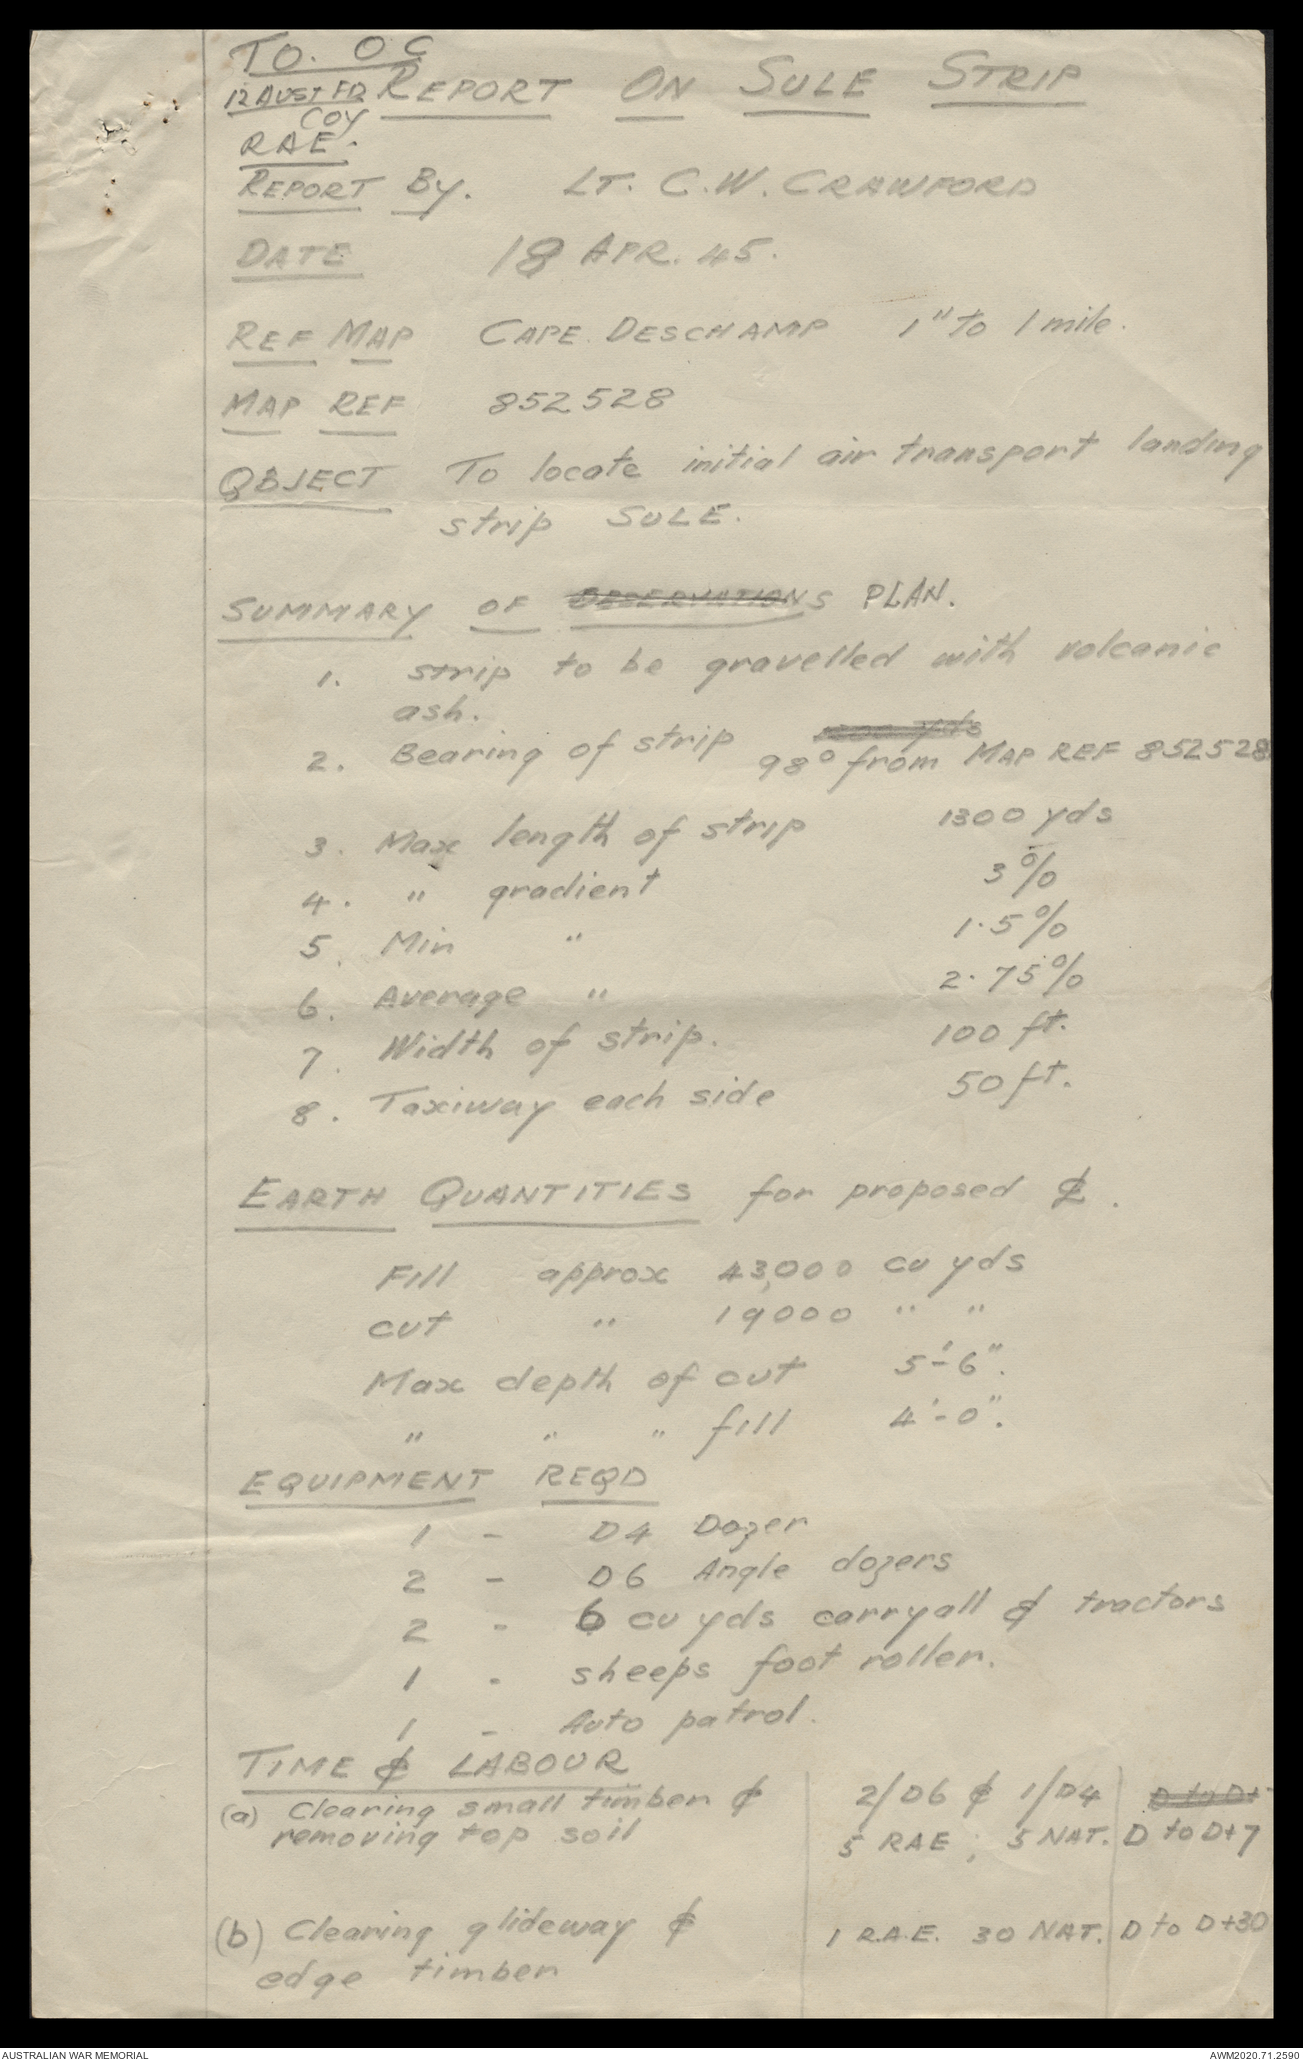 TO. OC
12 AUST FD COY
RAE.
REPORT ON SULE STRIP
REPORT By. LT. C.W. CRAWFORD
DATE 18 APR. 45.
REF MAP CAPE. DESCHAMP 1" to 1 mile.
MAP REF 852528
OBJECT To locate initial air transport landing
strip SULE.
SUMMARY OF OBSERVATIONS PLAN.
1. strip to be gravelled with volcanic
ash.
2. Bearing of strip 1300 yds 98° from MAP REF 852528
3. Max length of strip 1300 yds
4. " gradient 3%
5. Min " 1.5%
6. Average " 2.75%
7. Width of strip. 100 ft.
8. Taxiway each side 50 ft.
EARTH QUANTITIES for proposed ℄.
Fill approx 43,000 cu yds
cut " 19000 " "
Max depth of cut 5'-6".
" " " fill 4'-0".
EQUIPMENT REQD
1 - D4 Dozer
2 - D6 Angle dozers
2 - 6 cu yds carryall & tractors
1 - sheeps foot roller.
1 - Auto patrol.
TIME & LABOUR
(a) Clearing small timber & 2/D6 & 1/D4 D to D+
removing top soil 5 RAE; 5 NAT. D to D+7
(b) Clearing glideway & 1 R.A.E. 30 NAT. D to D+30
edge timber
AUSTRALIAN WAR MEMORIAL AWM2020.71.2590